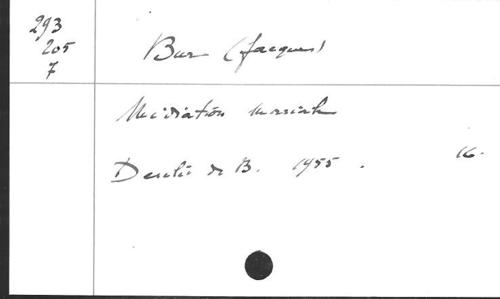 293
205
7
Bur (Jacques)
Médiation mariale
Desclée de B. 1955. 16.